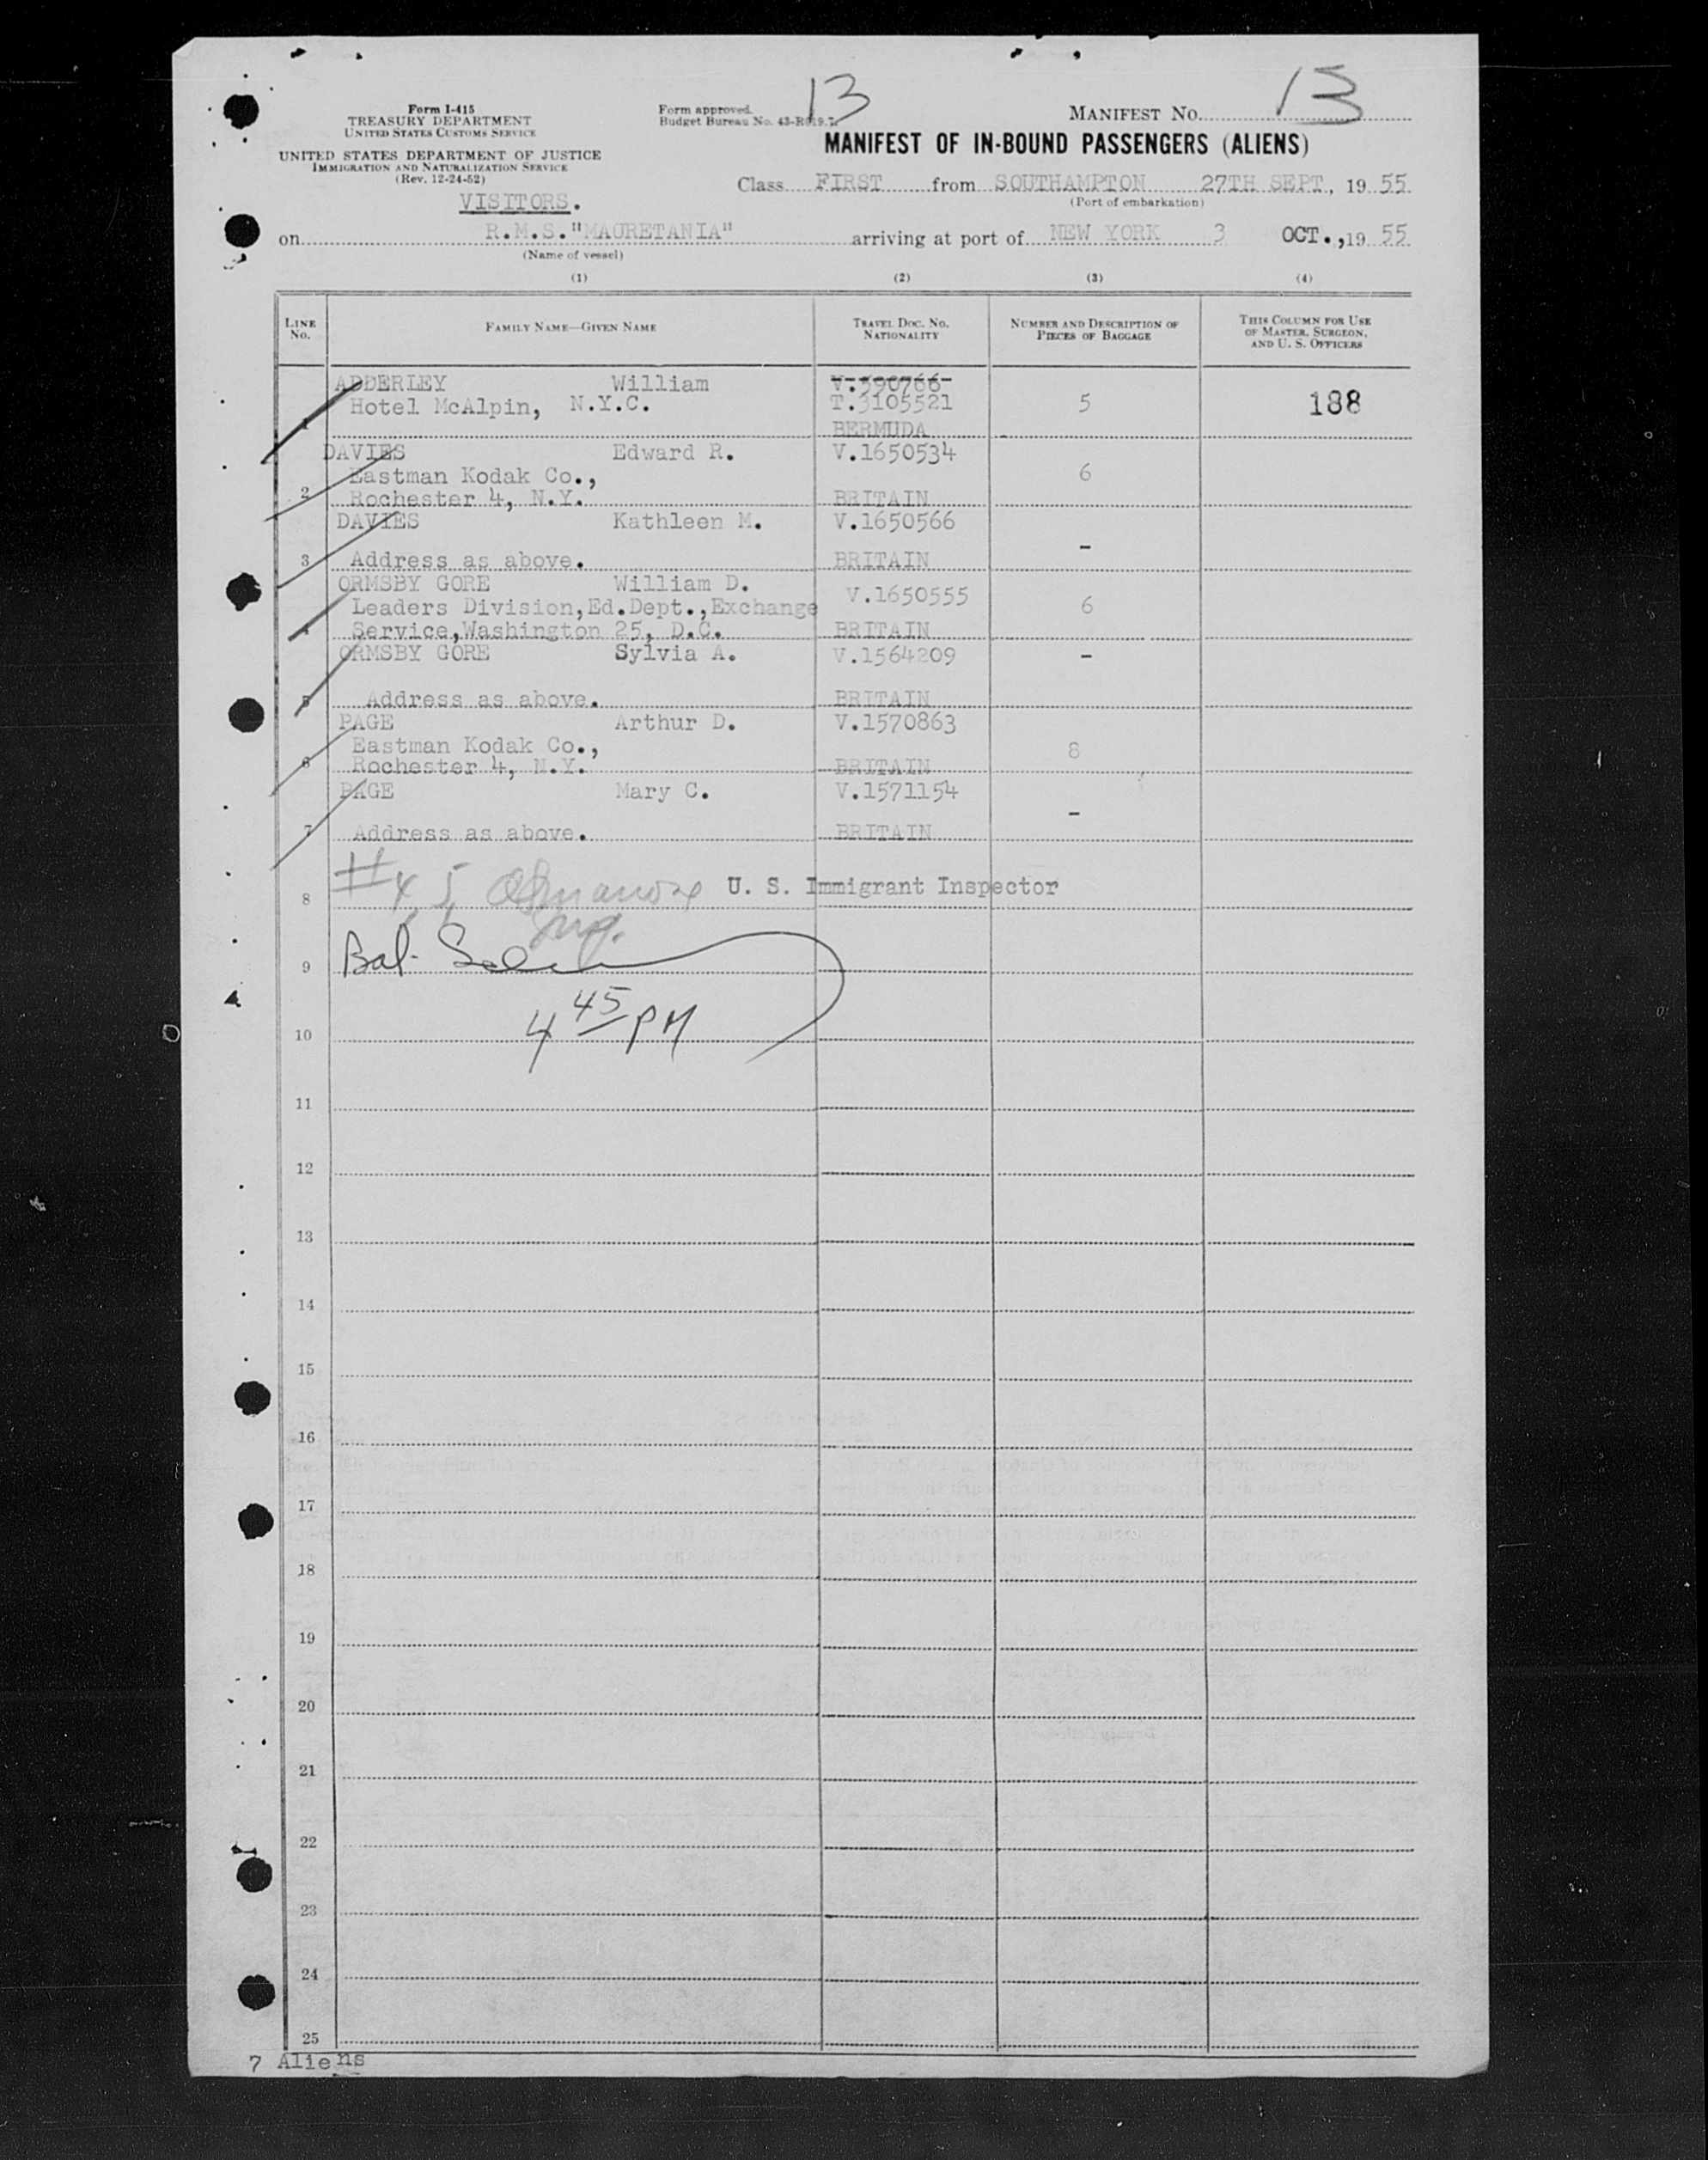 13
MANIFEST No. 13
Form I-415
TREASURY DEPARTMENT
UNITED STATES CUSTOMS SERVICE
Form approved.
Budget Bureau No. 43-R019.7.
UNITED STATES DEPARTMENT OF JUSTICE
IMMIGRATION AND NATURALIZATION SERVICE
(Rev. 12-24-52)
MANIFEST OF IN-BOUND PASSENGERS (ALIENS)
Class FIRST from SOUTHAMPTON 27TH SEPT, 19 55
(Port of embarkation)
VISITORS.
on R.M.S."MAURETANIA" arriving at port of NEW YORK 3 OCT., 19 55
(Name of vessel)
(1) (2) (3) (4)
LINE No. FAMILY NAME—GIVEN NAME TRAVEL DOC. NO. NATIONALITY NUMBER AND DESCRIPTION OF PIECES OF BAGGAGE THIS COLUMN FOR USE OF MASTER, SURGEON, AND U. S. OFFICERS
ADDERLEY William V.390766
Hotel McAlpin, N.Y.C. T.3105521 5 188
1 BERMUDA
DAVIES Edward R. V.1650534
Eastman Kodak Co., 6
2 Rochester 4, N.Y. BRITAIN
DAVIES Kathleen M. V.1650566
-
3 Address as above. BRITAIN
ORMSBY GORE William D. V.1650555
Leaders Division,Ed.Dept.,Exchange 6
4 Service,Washington 25, D.C. BRITAIN
ORMSBY GORE Sylvia A. V.1564209 -
5 Address as above. BRITAIN
PAGE Arthur D. V.1570863
Eastman Kodak Co., 8
6 Rochester 4, N.Y. BRITAIN
PAGE Mary C. V.1571154
-
7 Address as above. BRITAIN
#4 5 U. S. Immigrant Inspector
8
9 Bal.
4 45 PM
10
11
12
13
14
15
16
17
18
19
20
21
22
23
24
25
7 Aliens